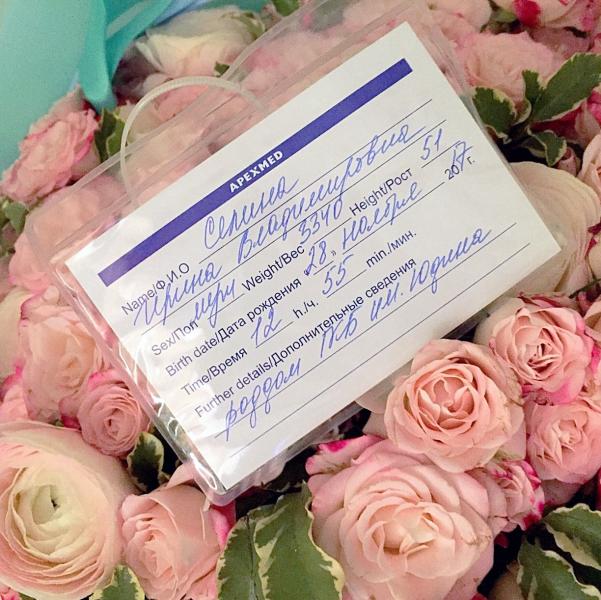 APEXMED
Name/Ф.И.О Селина
Ирина Владимировна
Sex/Пол муж Weight/Вес 3340 Height/Рост 51
Birth date/Дата рождения 28 " Ноября 2017г.
Time/Время 12 h./ч. 55 min./мин.
Further details/Дополнительные сведения
роддом ГКБ им. Юдина